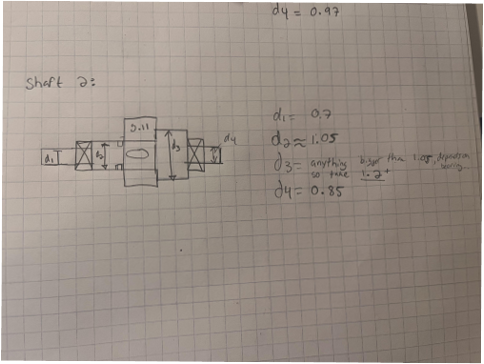 d4 = 0.97
Shaft 2:
5.11
d1
d2
d3
d4
d1 = 0.7
d2 ≈ 1.05
d3 = anything bigger than 1.05, depends on bearing
so take 1.2"
d4 = 0.85